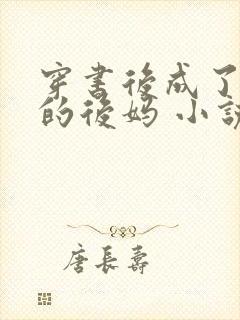 穿書後成了
的後媽 小説
唐長壽